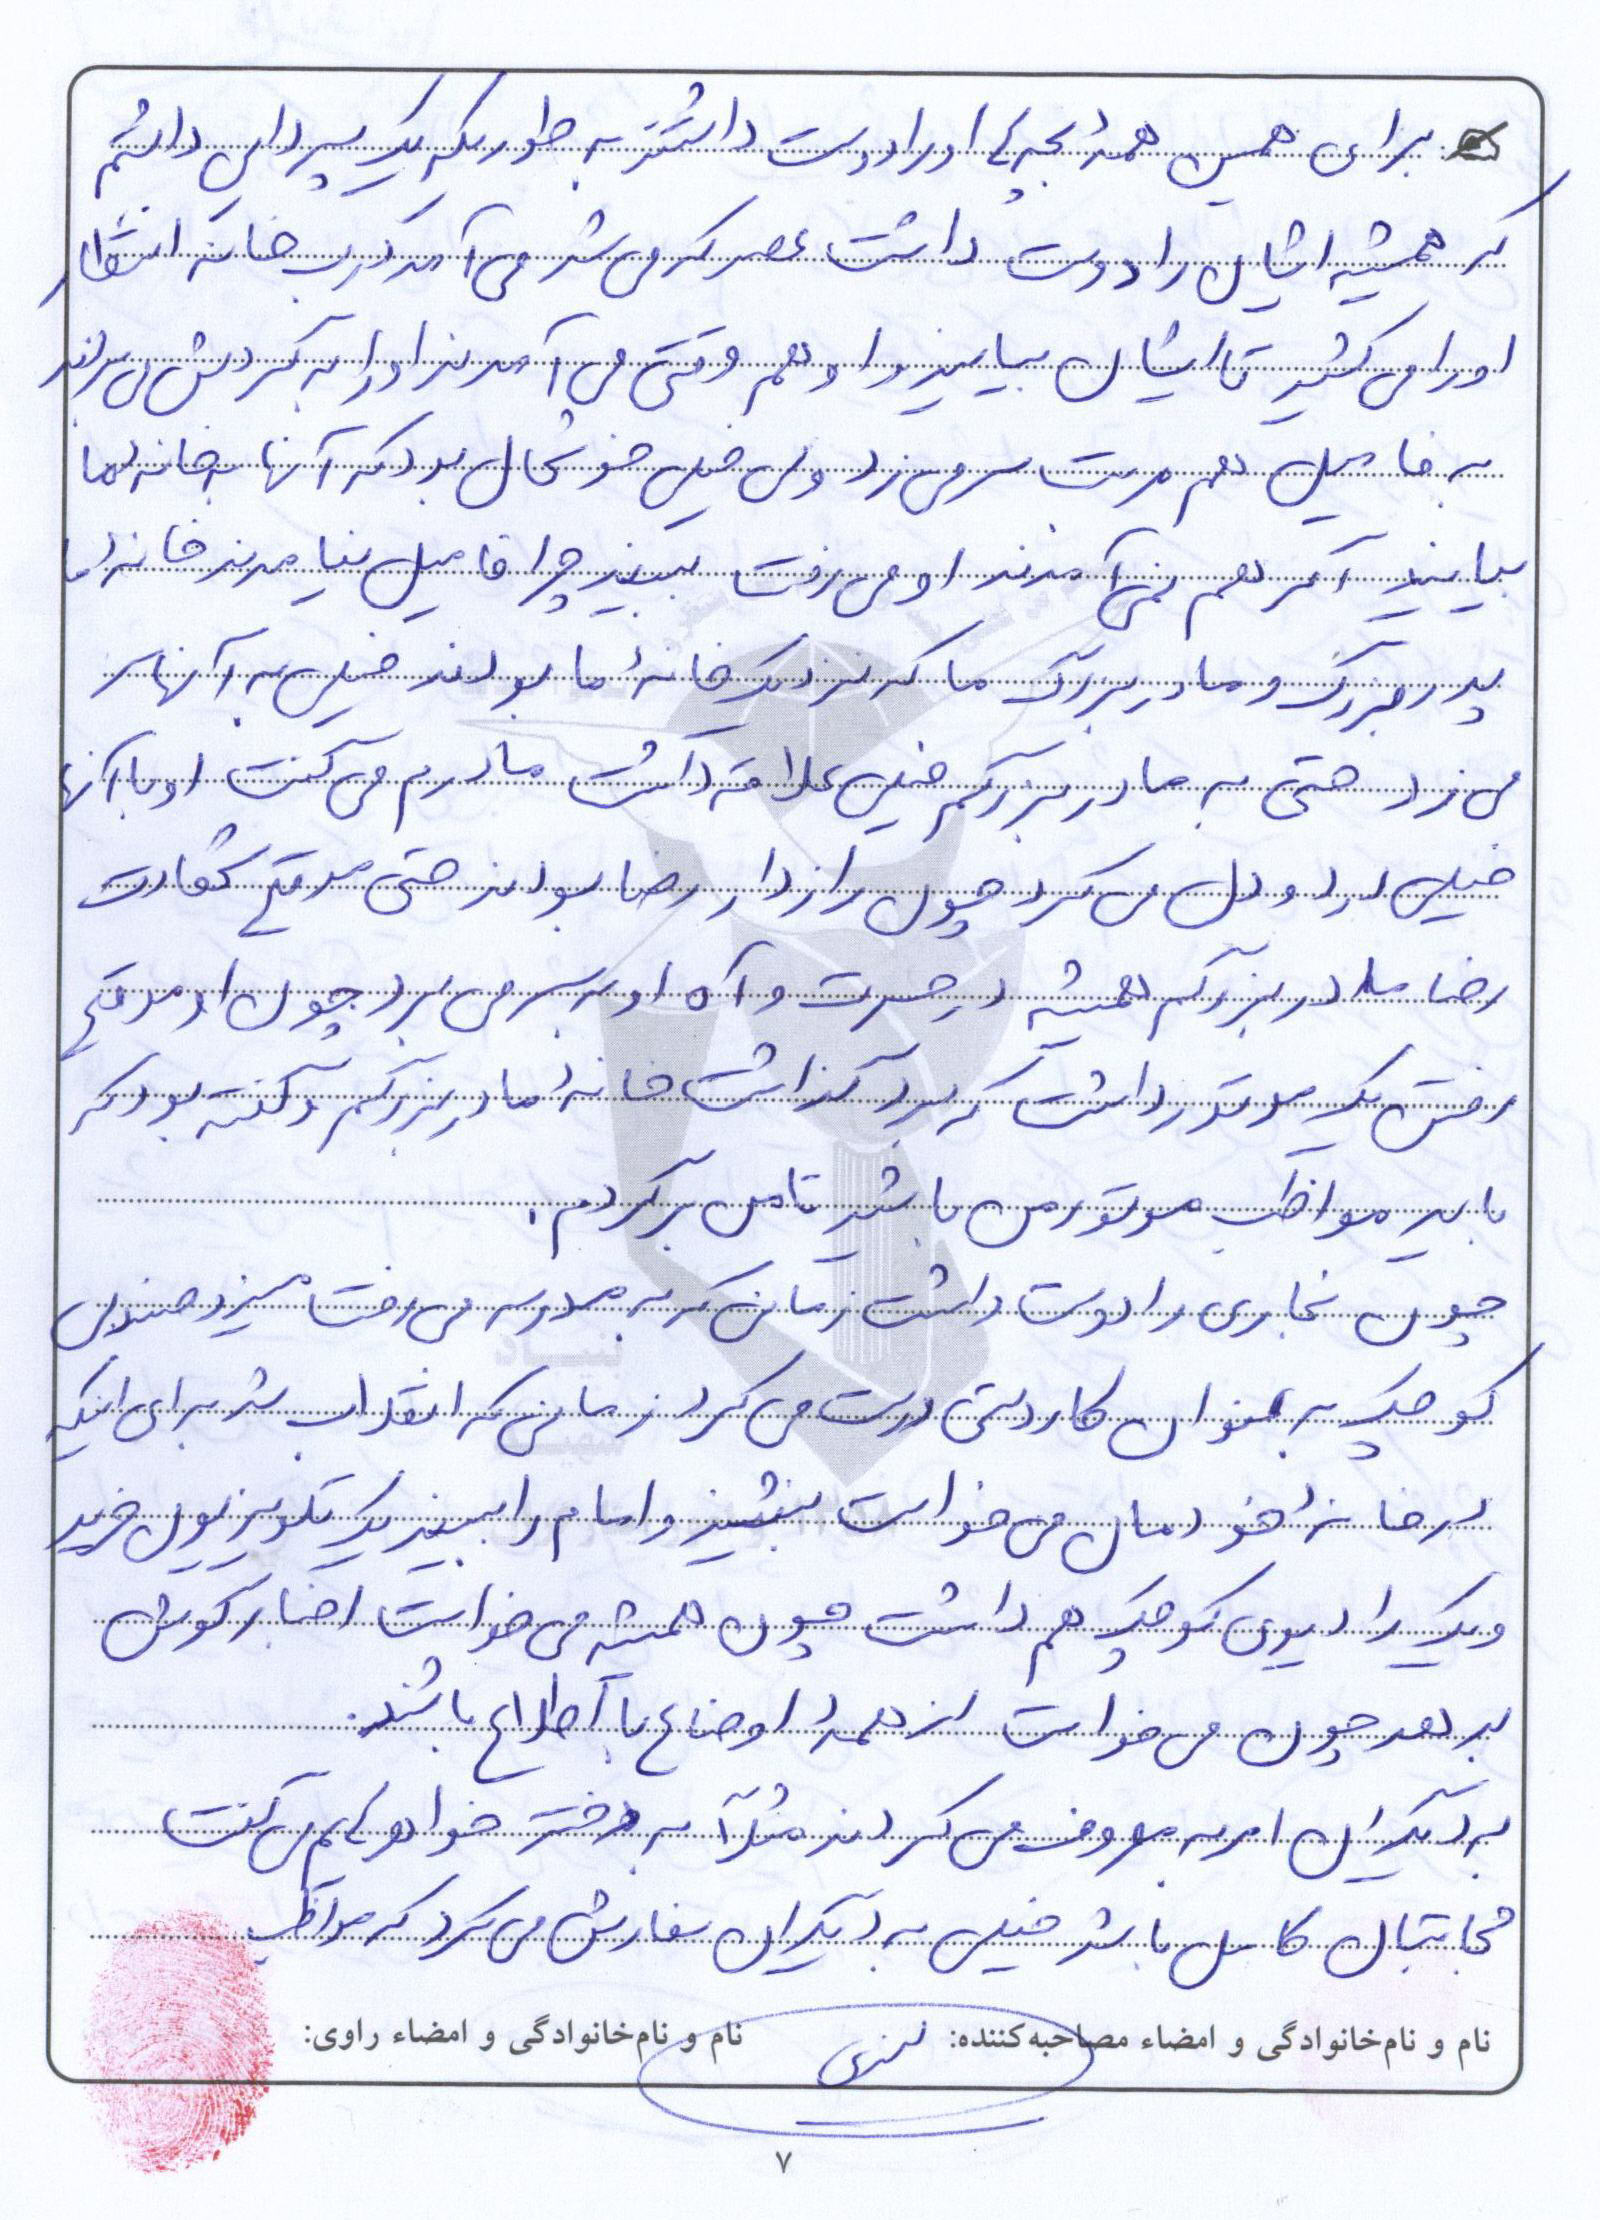 برای همین همهٔ بچه‌ها او را دوست داشتند به طوریکه یک پسر دایی داشتم
که همیشه ایشان را دوست داشت عصر که می شد می آمد درب خانه انتظار
او را می کشید تا ایشان بیایند و او هم وقتی می آمدند او را به گردش می بردند
به فامیل هم مرتب سر می زد ولی خیلی خوشحال بود که آنها به خانه ما
بیایند اگر هم نمی آمدند او می رفت ببیند چرا فامیل نیامدند خانه ما
پدربزرگ و مادربزرگ ما که نزدیک خانهٔ ما بودند خیلی به آنها سر
می زد حتی به مادربزرگم خیلی علاقه داشت مادرم می گفت او با آنها
خیلی درد و دل می کرد چون رازدار رضا بودند حتی موقع شهادت
رضا مادربزرگم همیشه در حسرت و آه او به سر می برد چون او موقع
رفتن یک موتور داشت که برد گذاشت خانهٔ مادربزرگم و گفته بود که
باید مواظب موتور من باشید تا من برگردم.
چون نجاری را دوست داشت زمانی که به مدرسه می رفت میز و صندلی
کوچک به عنوان کاردستی درست می کرد زمانی که انقلاب شد برای اینکه
در خانهٔ خودمان می خواست بنشیند و امام را ببیند یک تلویزیون خرید
و یک رادیوی کوچک هم داشت چون همیشه می خواست اخبار گوش
بدهد چون می خواست از همهٔ اوضاع با اطلاع باشد.
به دیگران امر به معروف می کردند مثلاً به دختر خواهرهایم می گفت
حجابتان کامل باشد خیلی به دیگران سفارش می کرد که مواظب
نام و نام‌خانوادگی و امضاء مصاحبه‌کننده: نام و نام‌خانوادگی و امضاء راوی:
۷